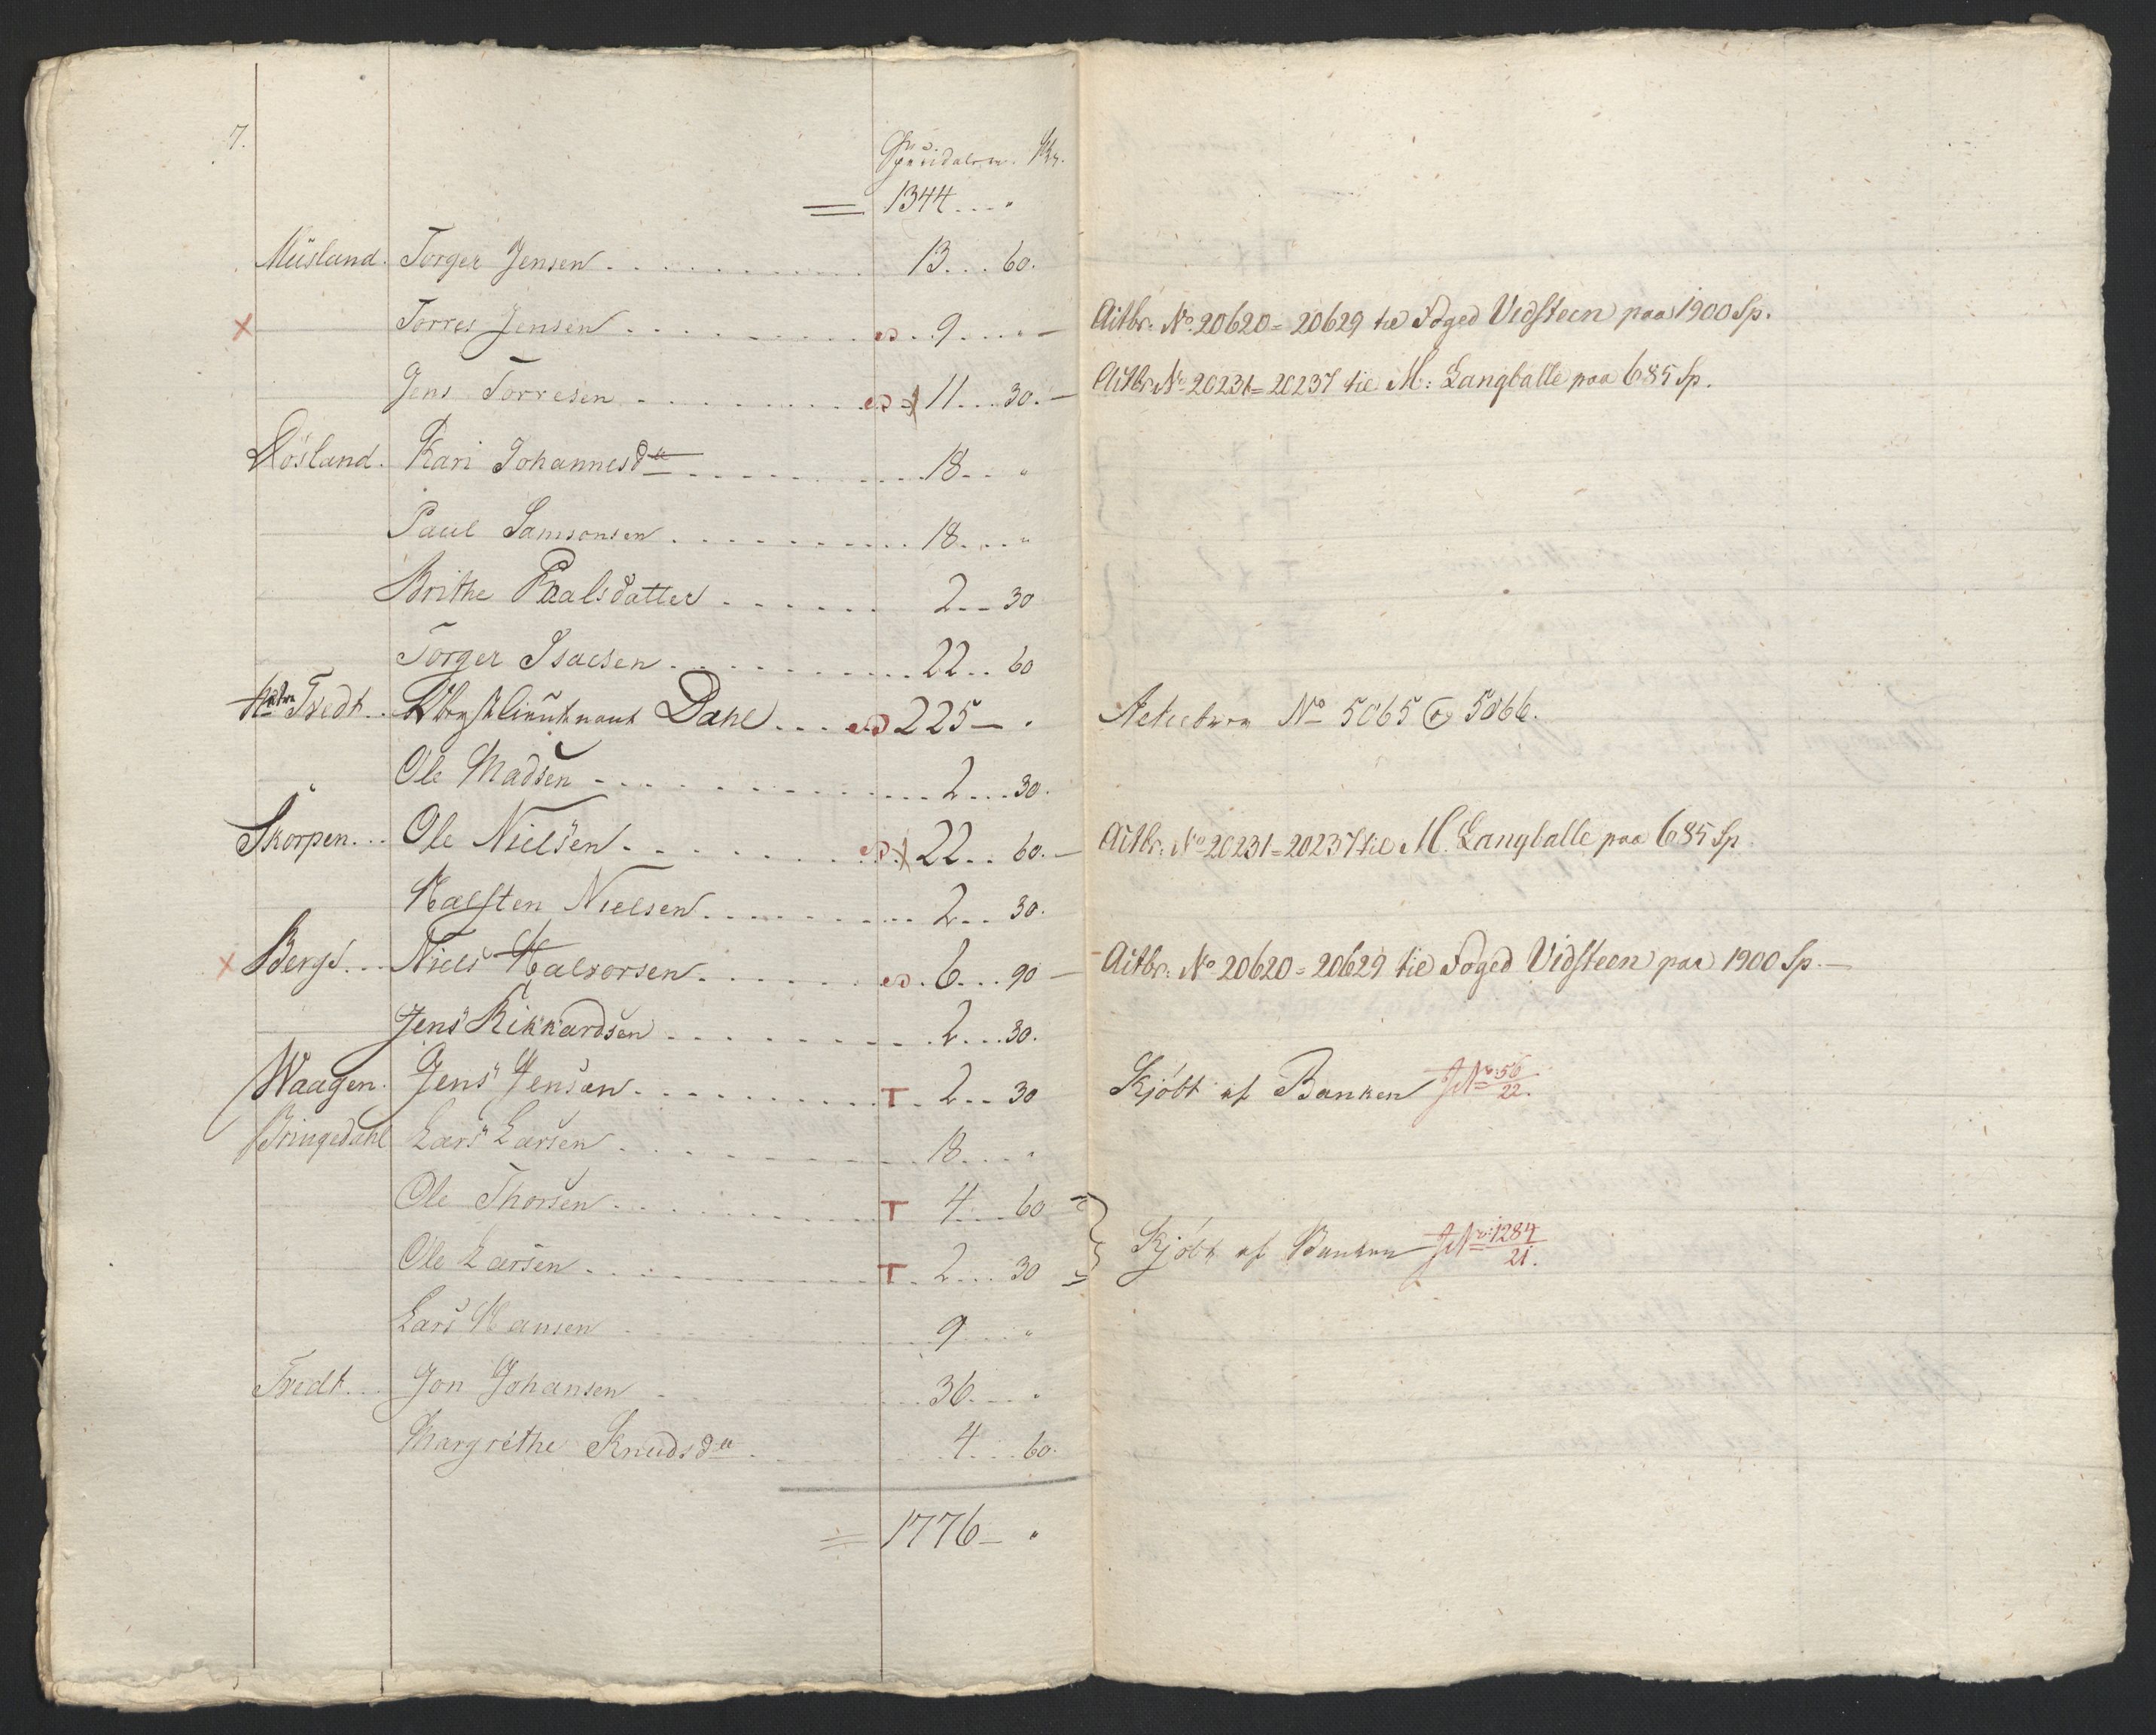 7.
Speciedaler. Sk.
1344 . . . "
Müsland. Torger Jensen . . . 13 . . . 60.
x Torres Jensen . . . 9 . . . " — Actbr: No 20620 = 20629 til Foged Vidsteen paa 1900 Sp.
Jens Torresen . . . 11 . . . 30. — Actbr: No 20231 = 20237 til M: Langballe paa 685 Sp.
Døsland. Kari Johannesdtr . . . 18 . . "
Paul Samsonsen . . . 18 . . . "
Brithe Paalsdatter . . . 2 . . 30
Torger Isacsen . . . 22 . . 60
Tvedt. Obrystlieutnant Dahl . . . 225 — . Actiebrev No 5065 og 5066.
" Ole Madsen . . . 2 . . . 30.
Skorpen . . . Ole Nielsen . . . 22 . . 60. — Actbr: No 20231 = 20237 til M. Langballe paa 685 Sp
Halsten Nielsen . . . 2 . . . 30.
x Berge . . . Niels Halvorsen . . . 6 . . . 90 — Actbr: No 20620 = 20629 til Foged Vidsteen paa 1900 Sp. —
Jens Rikkardsen . . . 2 . . . 30.
Waagen. Jens Jensen . . . T . 2 . . 30 Kjøbt af Banken J No: 56/22.
Bringedahl Lars Larsen . . . 18 . . . "
Ole Thorsen . . . T 4 . . . 60
Ole Larsen . . . T . 2 . . . 30 } Kjøbt af Banken J No: 1284/21.
Lars Hansen . . . 9 . . . "
Tvedt . . . Jon Johansen . . . 36 . . . "
Margrethe Knudsdtr . . . 4 . . . 60.
= 1776 — "